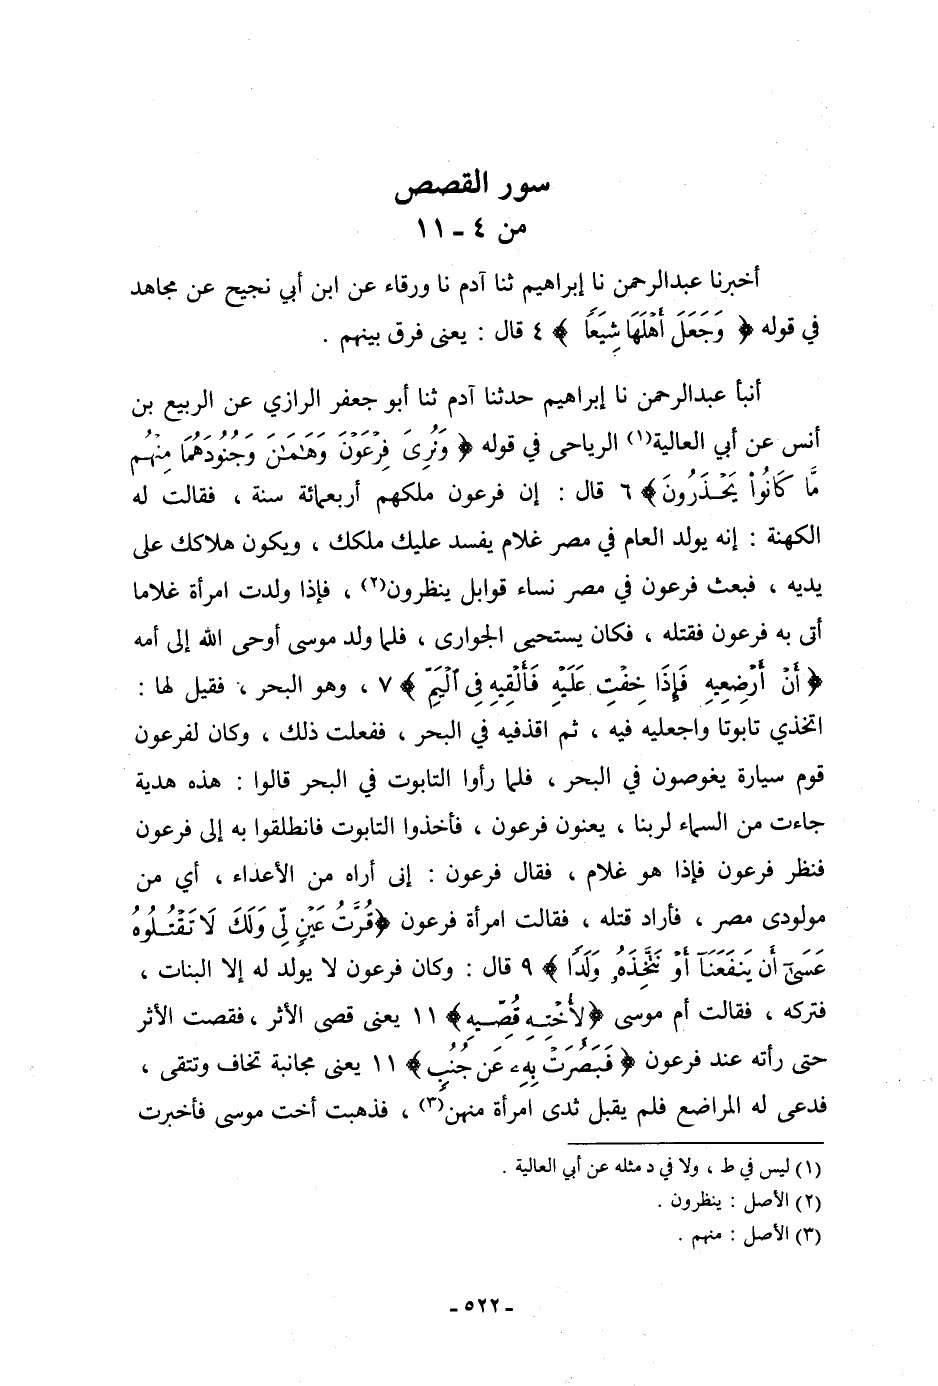 سور القصص
من ٤ - ١١
أخبرنا عبدالرحمن نا إبراهيم ثنا آدم نا ورقاء عن ابن أبي نجيح عن مجاهد
في قوله ﴿ وَجَعَلَ أَهْلَهَا شِيَعًا ﴾ ٤ قال : يعنى فرق بينهم .
أنبأ عبدالرحمن نا إبراهيم حدثنا آدم ثنا أبو جعفر الرازي عن الربيع بن
أنس عن أبي العالية(١) الرياحى في قوله ﴿ وَنُرِىَ فِرْعَوْنَ وَهَـٰمَـٰنَ وَجُنُودَهُمَا مِنْهُم
مَّا كَانُوا۟ يَحْذَرُونَ ﴾ ٦ قال : إن فرعون ملكهم أربعمائة سنة ، فقالت له
الكهنة : إنه يولد العام في مصر غلام يفسد عليك ملكك ، ويكون هلاكك على
يديه ، فبعث فرعون في مصر نساء قوابل ينظرون(٢) ، فإذا ولدت امرأة غلاما
أتى به فرعون فقتله ، فكان يستحيى الجوارى ، فلما ولد موسى أوحى الله إلى أمه
﴿ أَنْ أَرْضِعِيهِ فَإِذَا خِفْتِ عَلَيْهِ فَأَلْقِيهِ فِى ٱلْيَمِّ ﴾ ٧ ، وهو البحر ، فقيل لها :
اتخذي تابوتا واجعليه فيه ، ثم اقذفيه في البحر ، ففعلت ذلك ، وكان لفرعون
قوم سيارة يغوصون في البحر ، فلما رأوا التابوت في البحر قالوا : هذه هدية
جاءت من السماء لربنا ، يعنون فرعون ، فأخذوا التابوت فانطلقوا به إلى فرعون
فنظر فرعون فإذا هو غلام ، فقال فرعون : إنى أراه من الأعداء ، أي من
مولودى مصر ، فأراد قتله ، فقالت امرأة فرعون ﴿قُرَّتُ عَيْنٍ لِّى وَلَكَ لَا تَقْتُلُوهُ
عَسَىٰٓ أَن يَنفَعَنَآ أَوْ نَتَّخِذَهُۥ وَلَدًا ﴾ ٩ قال : وكان فرعون لا يولد له إلا البنات ،
فتركه ، فقالت أم موسى ﴿لِأُخْتِهِۦ قُصِّيهِ﴾ ١١ يعنى قصى الأثر ، فقصت الأثر
حتى رأته عند فرعون ﴿ فَبَصُرَتْ بِهِۦ عَن جُنُبٍ ﴾ ١١ يعنى مجانبة تخاف وتتقى ،
فدعى له المراضع فلم يقبل ثدى امرأة منهن(٣) ، فذهبت أخت موسى فأخبرت
(١) ليس في ط ، ولا في د مثله عن أبي العالية .
(٢) الأصل : ينظرون .
(٣) الأصل : منهم .
- ٥٢٢ -